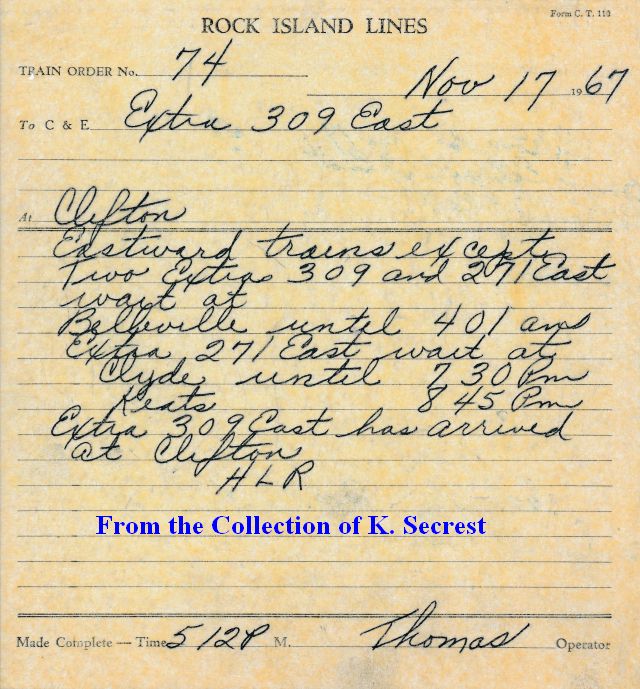 Form C. T. 110
ROCK ISLAND LINES
TRAIN ORDER No. 74
Nov 17 1967
To C & E Extra 309 East
At Clifton
Eastward trains except
Two Extras 309 and 271 East
wait at
Belleville until 401 am
Extra 271 East wait at
Clyde until 730 Pm
Keats 845 Pm
Extra 309 East has arrived
at Clifton
HLR
From the Collection of K. Secrest
Made Complete — Time 512P M. Thomas Operator